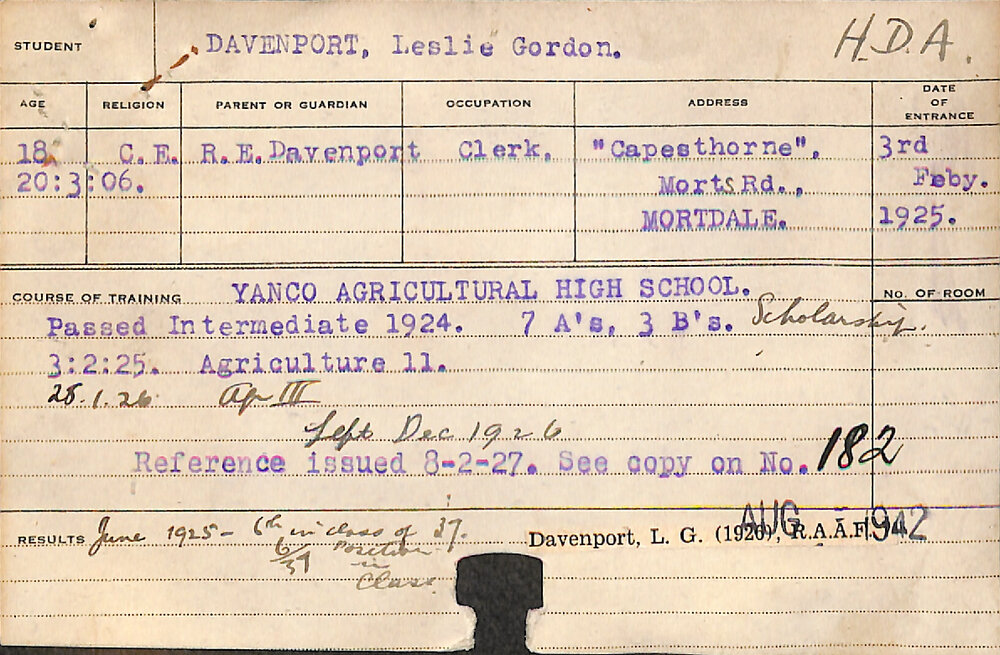 STUDENT DAVENPORT, Leslie Gordon. H.D.A.
AGE RELIGION PARENT OR GUARDIAN OCCUPATION ADDRESS DATE OF ENTRANCE
18. C.E. R.E.Davenport Clerk. "Capesthorne", 3rd
20:3:06. Morts Rd., Feby.
MORTDALE. 1925.
COURSE OF TRAINING YANCO AGRICULTURAL HIGH SCHOOL. No. OF ROOM
Passed Intermediate 1924. 7 A's, 3 B's. Scholarship.
3:2:25. Agriculture 11.
28.1.26 Agr III
Left Dec 1926
Reference issued 8-2-27. See copy on No. 182
RESULTS June 1925 - 6th in class of 37.
6/37 Position in Class.
Davenport, L. G. (1926), R.A.A.F.
AUG - 1942